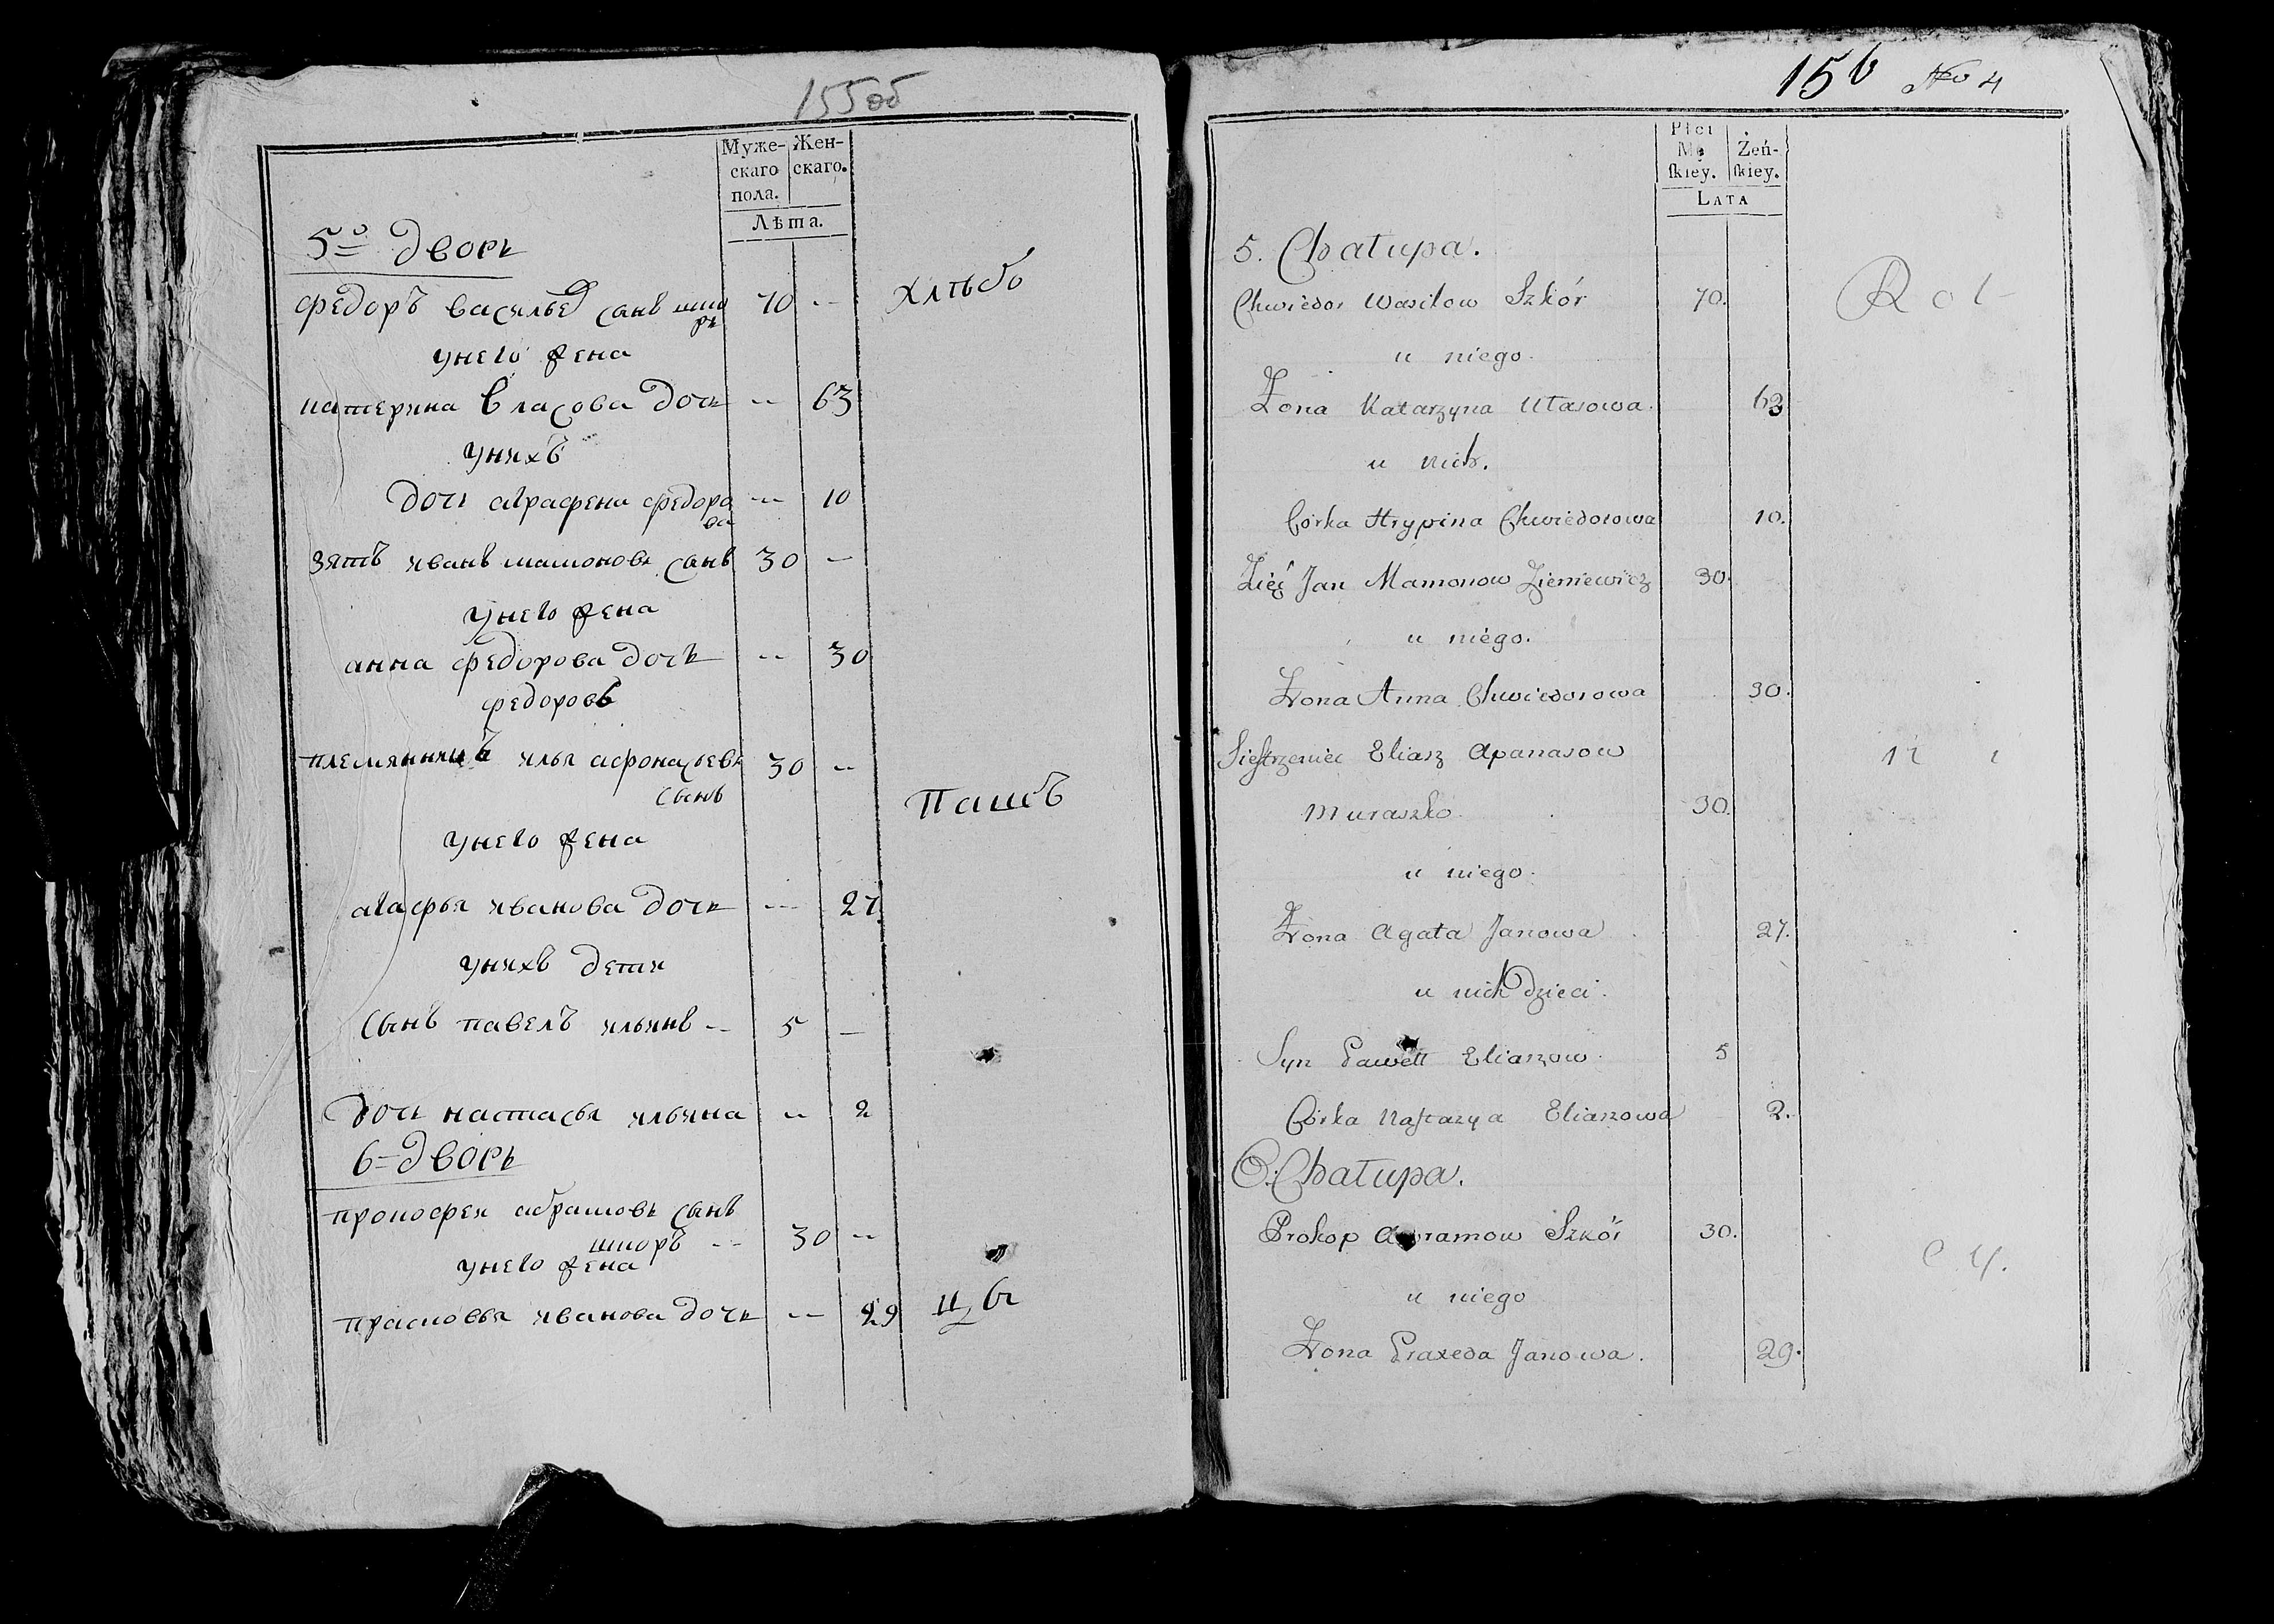 155 об
Муже-
скаго
пола.
Жен-
скаго.
Лѣта.
5о дворъ
федоръ васильев санъ шко
ръ
70 --
хлѣбо
унего жена
катерина власова дочь -- 63
унихъ
дочь аграфена федоро
ва
-- 10
зять иванъ мамоновъ санъ 30 --
унего жена
анна федорова дочь -- 30
федоровъ
племянникъ илья афонасьевъ 30 --
сынъ
Пашъ
унего жена
агафья иванова дочь -- 27
унихъ дети
сынъ павелъ ильинъ -- 5 --
дочь настасья ильина -- 2
6 дворъ
прокофей абрамовъ санъ
шкоръ -- 30 --
унего жена
прасковья иванова дочь -- 29
156 No 4
Płci
Mę
ſkiey.
Żeń-
ſkiey.
LATA
5. Chałupa.
Chwiedor Wasilow Szkór 70.
u niego.
Żona Katarzyna Ułasowa. 63
u nich.
Córka Hrypina Chwiedorowa 10.
Zięć Jan Mamonow Zieniewicz 30.
u niego.
Żona Anna Chwiedorowa 30.
Sieſtrzeniec Eliasz Apanasow
Muraszko. 30.
u niego.
Żona Agata Janowa 27.
u nich dzieci.
Syn Pawełł Eliaszow. 5
Córka Naſtazya Eliaszowa 2.
6. Chałupa.
Prokop Abramow Szkór 30.
u niego
Żona Praxeda Janowa. 29.